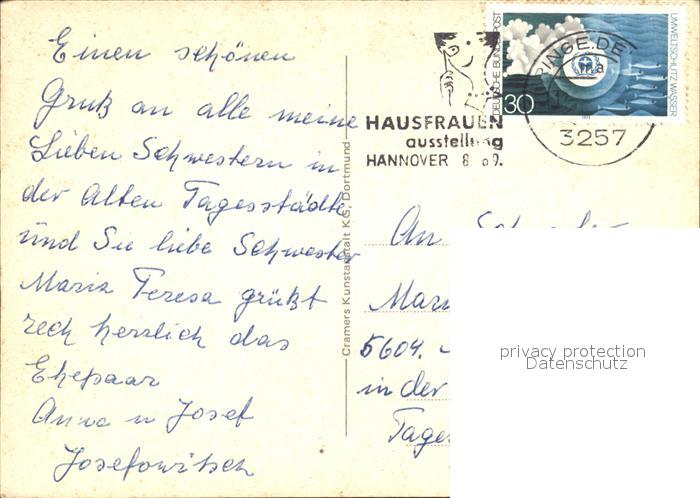 Einen schönen
Gruß an alle meine
Lieben Schwestern in
der Alten Tagesstädte
und Sie liebe Schwester
Maria Teresa grüßt
rech herzlich das
Ehepaar
Anna u Josef
Josefowitsch
Cramers Kunstanstalt KG, Dortmund
DEUTSCHE BUNDESPOST
UMWELTSCHUTZ: WASSER
30
1973
SPRINGE.DE
ma
3257
HAUSFRAUEN
ausstellung
HANNOVER 8
An
5604.
in der
privacy protection
Datenschutz